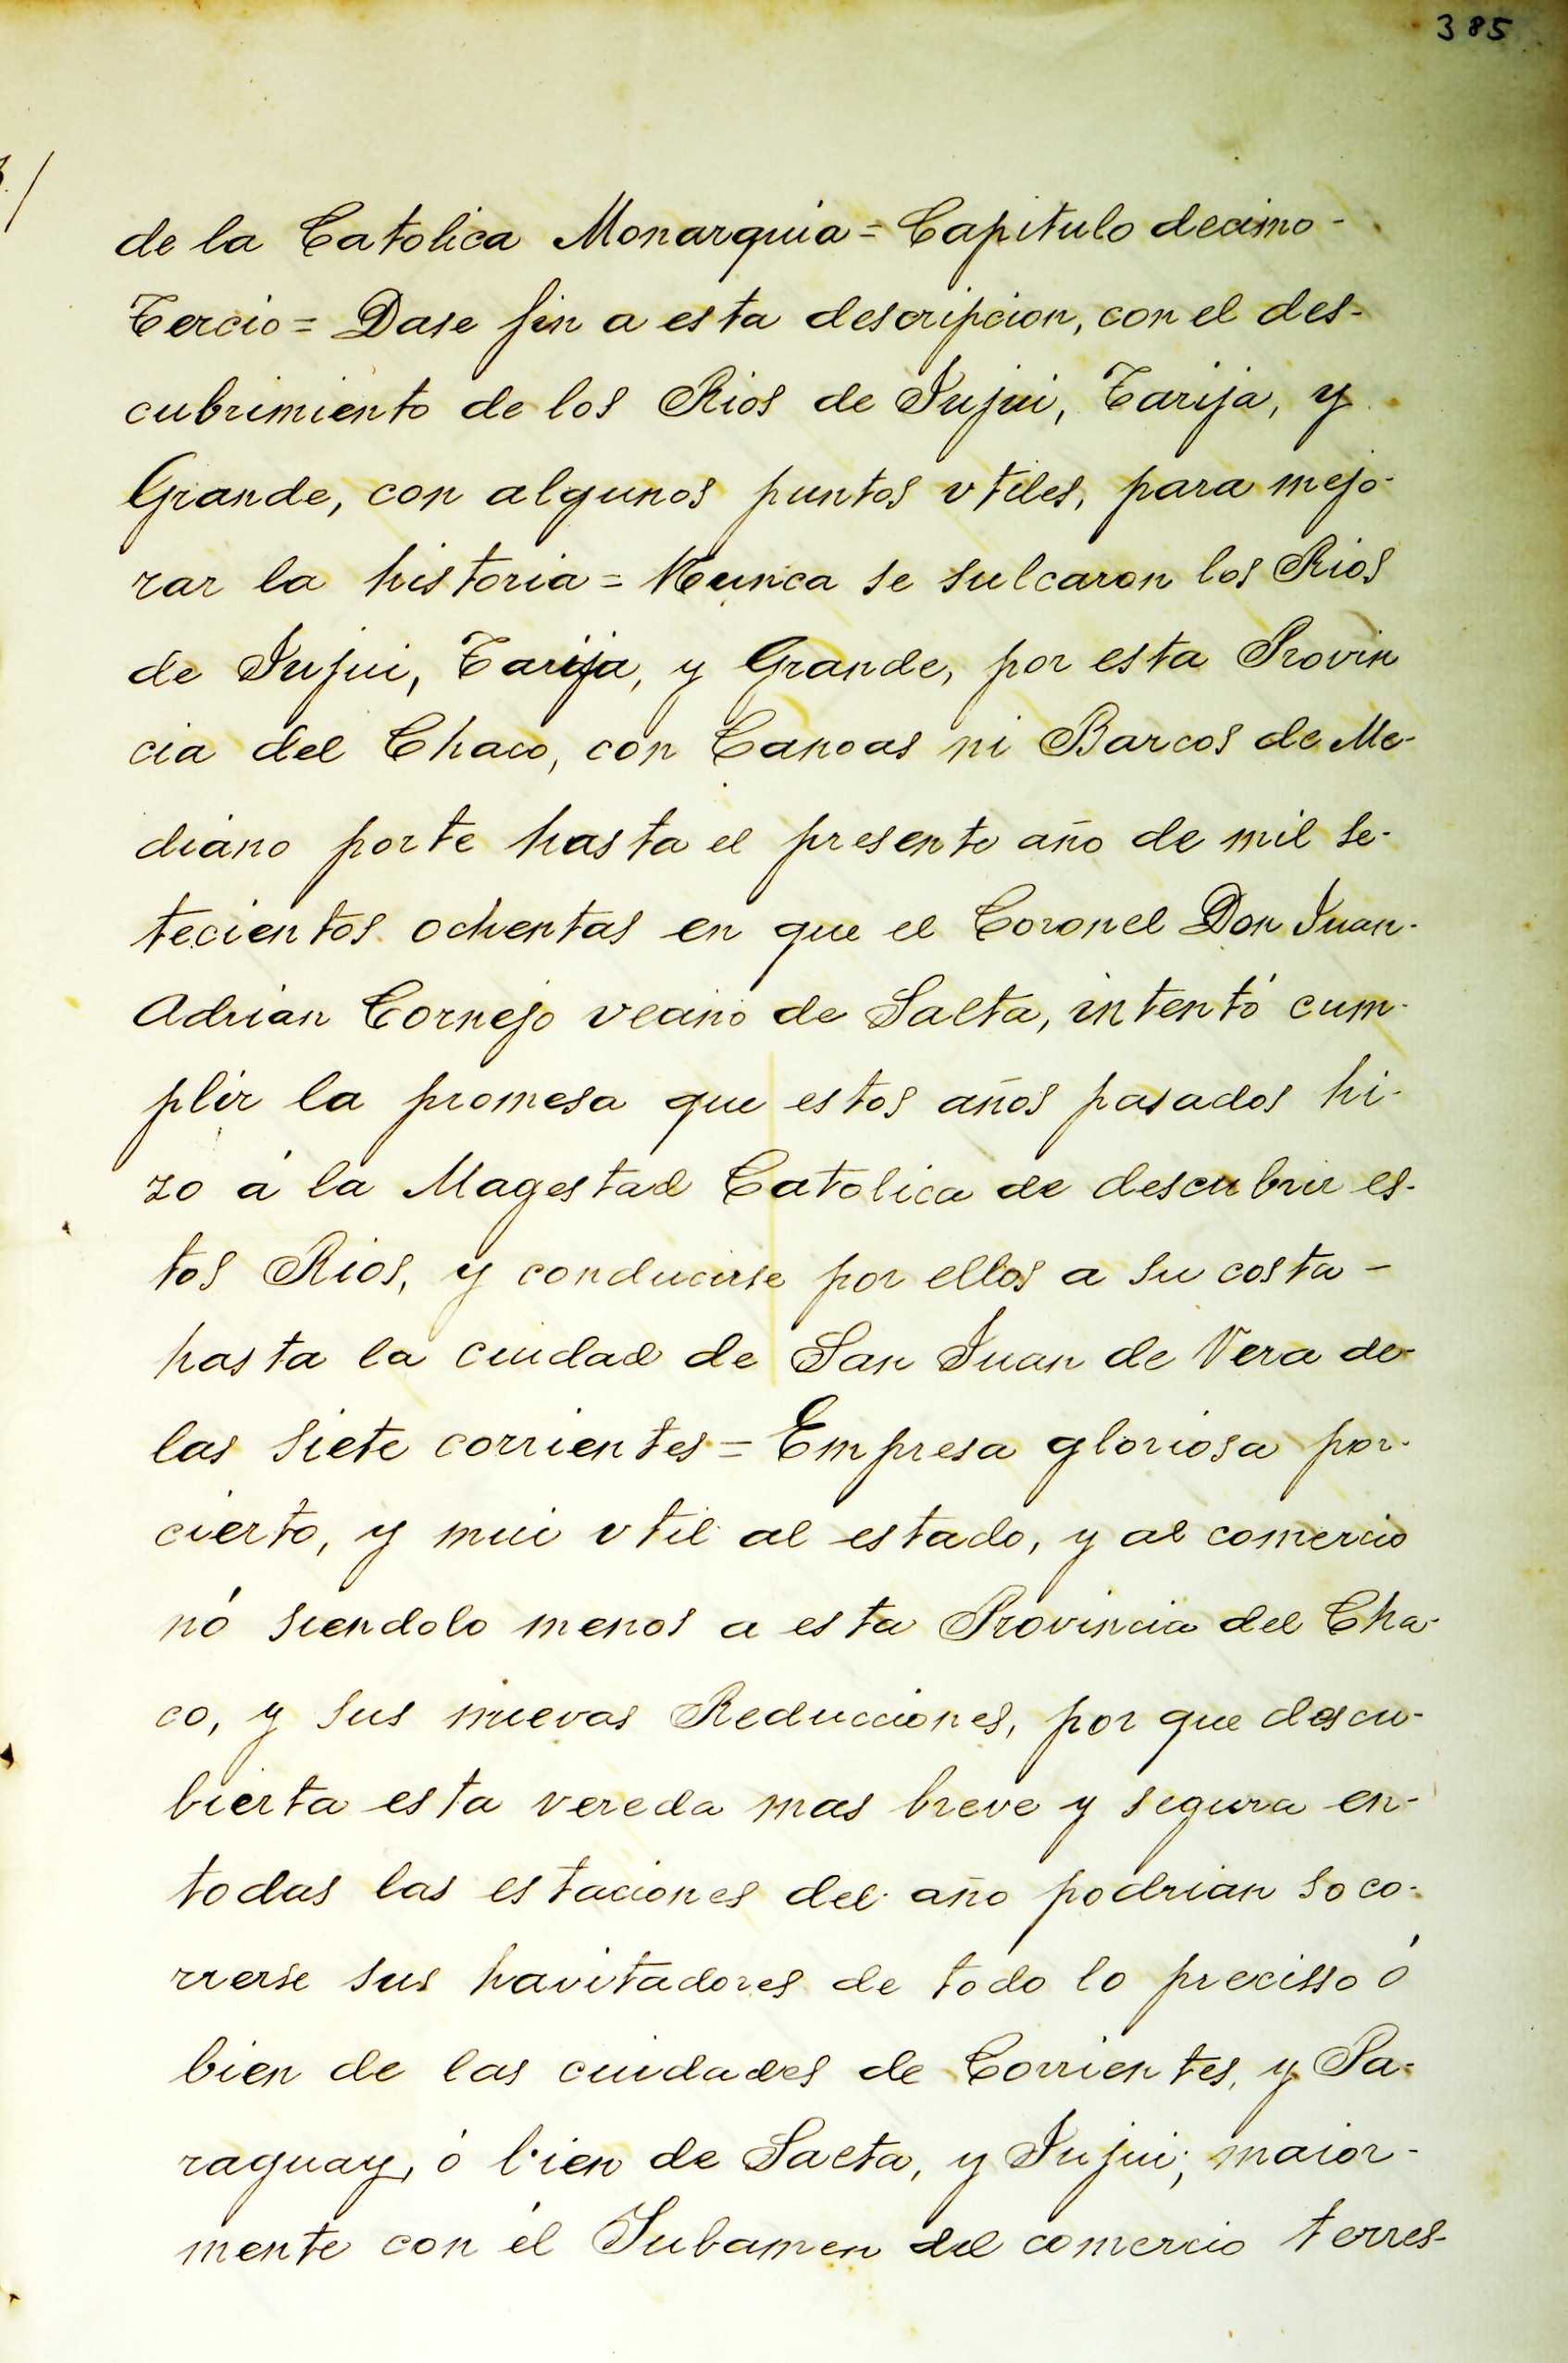 385
de la Catolica Monarquia = Capitulo decimo-
Tercio = Dase fin a esta descripcion, con el des-
cubrimiento de los Rios de Jujui, Tarija, y
Grande, con algunos puntos vtiles, para mejo-
rar la historia = Nunca se sulcaron los Rios
de Jujui, Tarija, y Grande, por esta Provin
cia del Chaco, con Canoas ni Barcos de Me-
diano porte hasta el presente año de mil se-
tecientos ochentas en que el Coronel Don Juan-
Adrian Cornejo vecino de Salta, intentó cum-
plir la promesa que estos años pasados hi-
zo á la Magestad Catolica de descubrir es-
tos Rios, y conducirse por ellos a su costa-
hasta la ciudad de San Juan de Vera de-
las siete corrientes = Empresa gloriosa por-
cierto, y mui vtil al estado, y al comercio
nó siendolo menos a esta Provincia del Cha-
co, y sus nuevas Reducciones, por que descu-
bierta esta vereda mas breve y segura en-
todas las estaciones del año podrian soco-
rrerse sus havitadores de todo lo precisso ó
bien de las ciudades de Corrientes, y Pa-
raguay, ó bien de Salta, y Jujui; maior-
mente con él Jubamen del comercio terres-